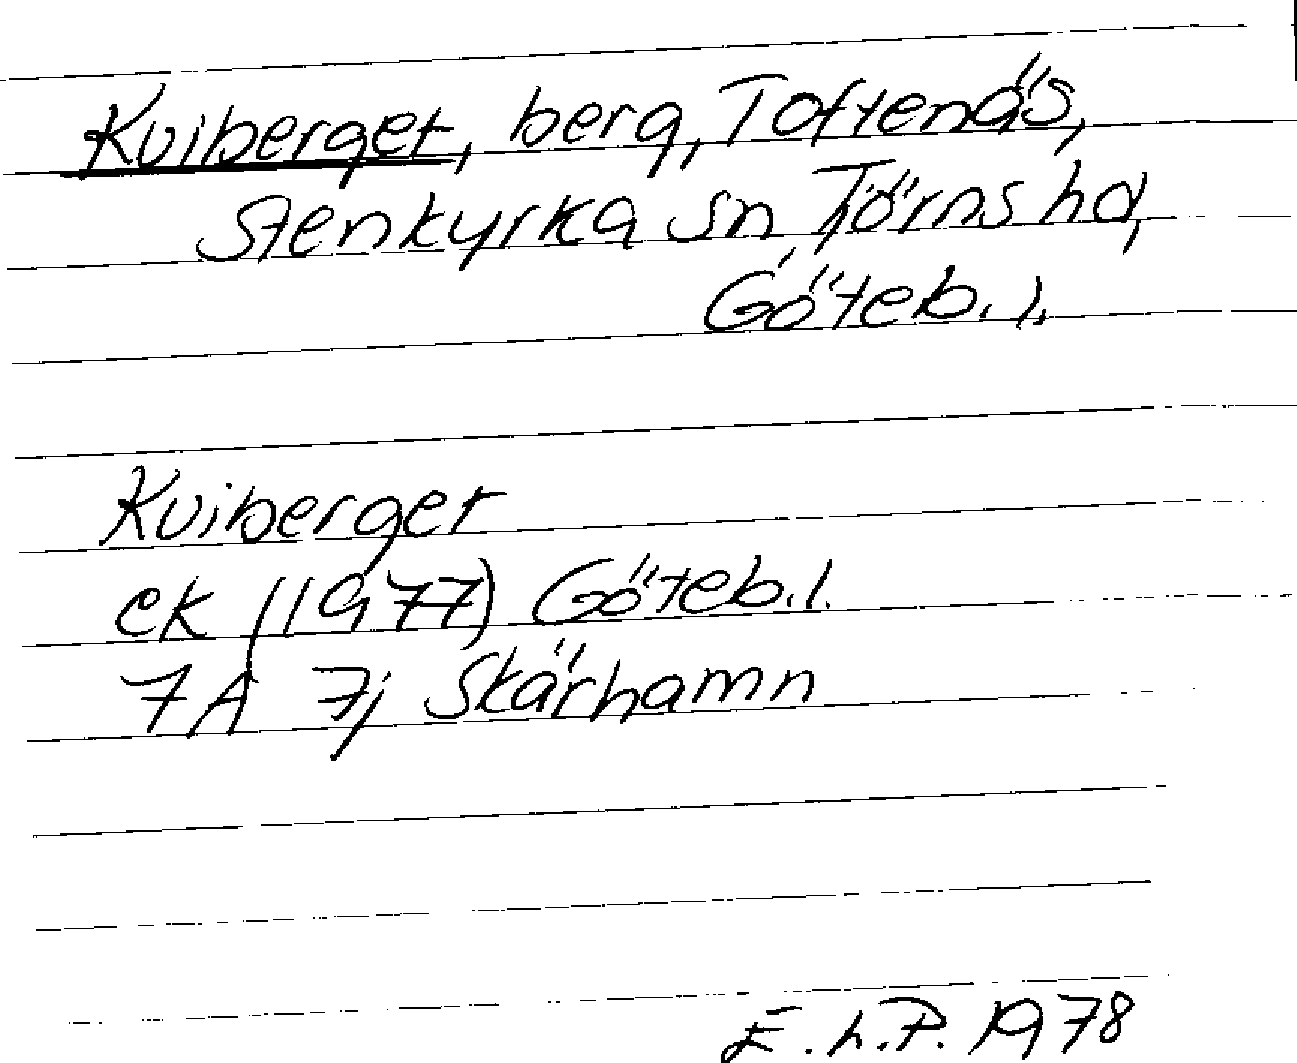 Kviberget, berg, Toftenäs,
Stenkyrka sn Tjörns hd,
Göteb. l.
Kviberget
ek (1977) Göteb. l.
7A 7j Skärhamn
E. L. P. 1978